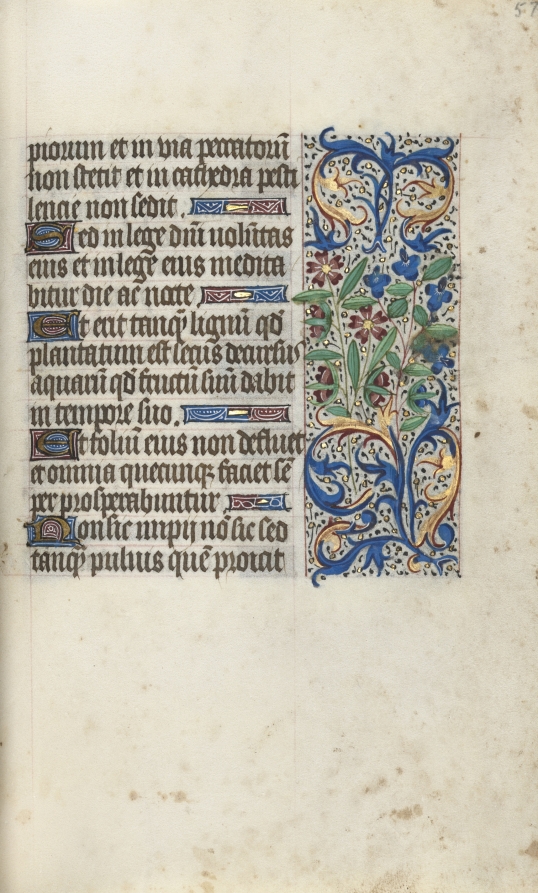 57
piorum et in via peccatorū
non stetit et in cathedra pesti
lencie non sedit.
Sed in lege dn̄i uolūtas
eius et in lege eius medita
bitur die ac nocte
Et erit tanq̄ lignū qd̄
plantatum est secus decursus
aquarū qd̄ fructū suū dabit
in tempore suo.
Et foliū eius non defluet
et omnia quecunqꝫ faciet sē
per prosperabuntur
Non sic impij nō sic sed
tanq̄ puluis quē proicit